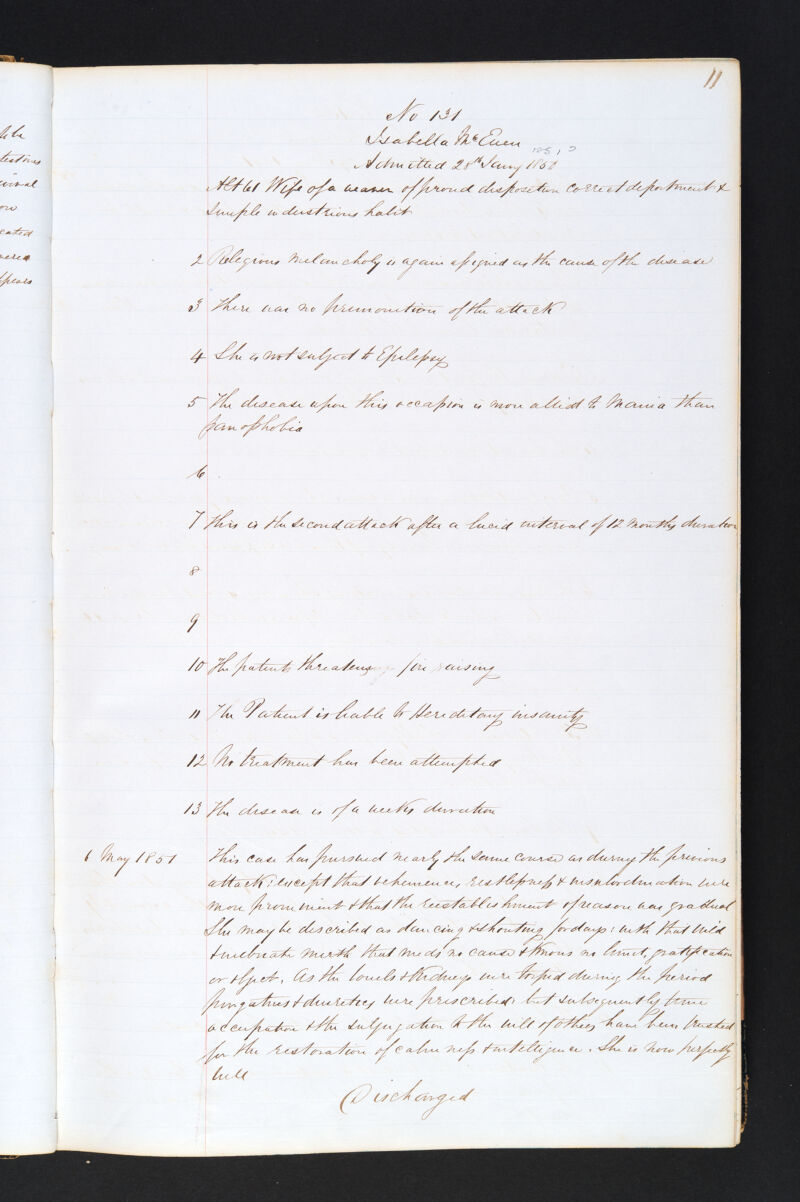 11
No 131
Isabella McEuen
1851?
Admitted 28th Jany 1850
Aet 61 Wife of a weaver of proud disposition correct deportment &
simple industrious habit
2 Religious melancholy is again assigned as the cause of the disease
3 There was no premonition of the attack
4 She is not subject to Epilepsy
5 The disease upon this occasion is more allied to Mania than
panophobia
6
7 This is the second attack after a lucid interval of 12 months duration
8
9
10 The patient threatens
11 The Patient is liable to Hereditary insanity
12 No treatment has been attempted
13 The disease is of a weeks duration
6 May 1851 This case has pursued nearly the same course as during the previous
attack: except that vehemence, restlessness & insubordination were
more prominent & that the reestablishment of reason was gradual
She may be described as dancing & shouting for days: with that wild
& inebriate mirth that needs no cause & knows no limit, gratification
or object. As the bowels & kidneys were torpid during the period
purgatives & diuretics were prescribed: but subsequently time
occupation & the subjugation to the will of others have been trusted
for the restoration of calmness & intelligence. She is now perfectly
well
Discharged